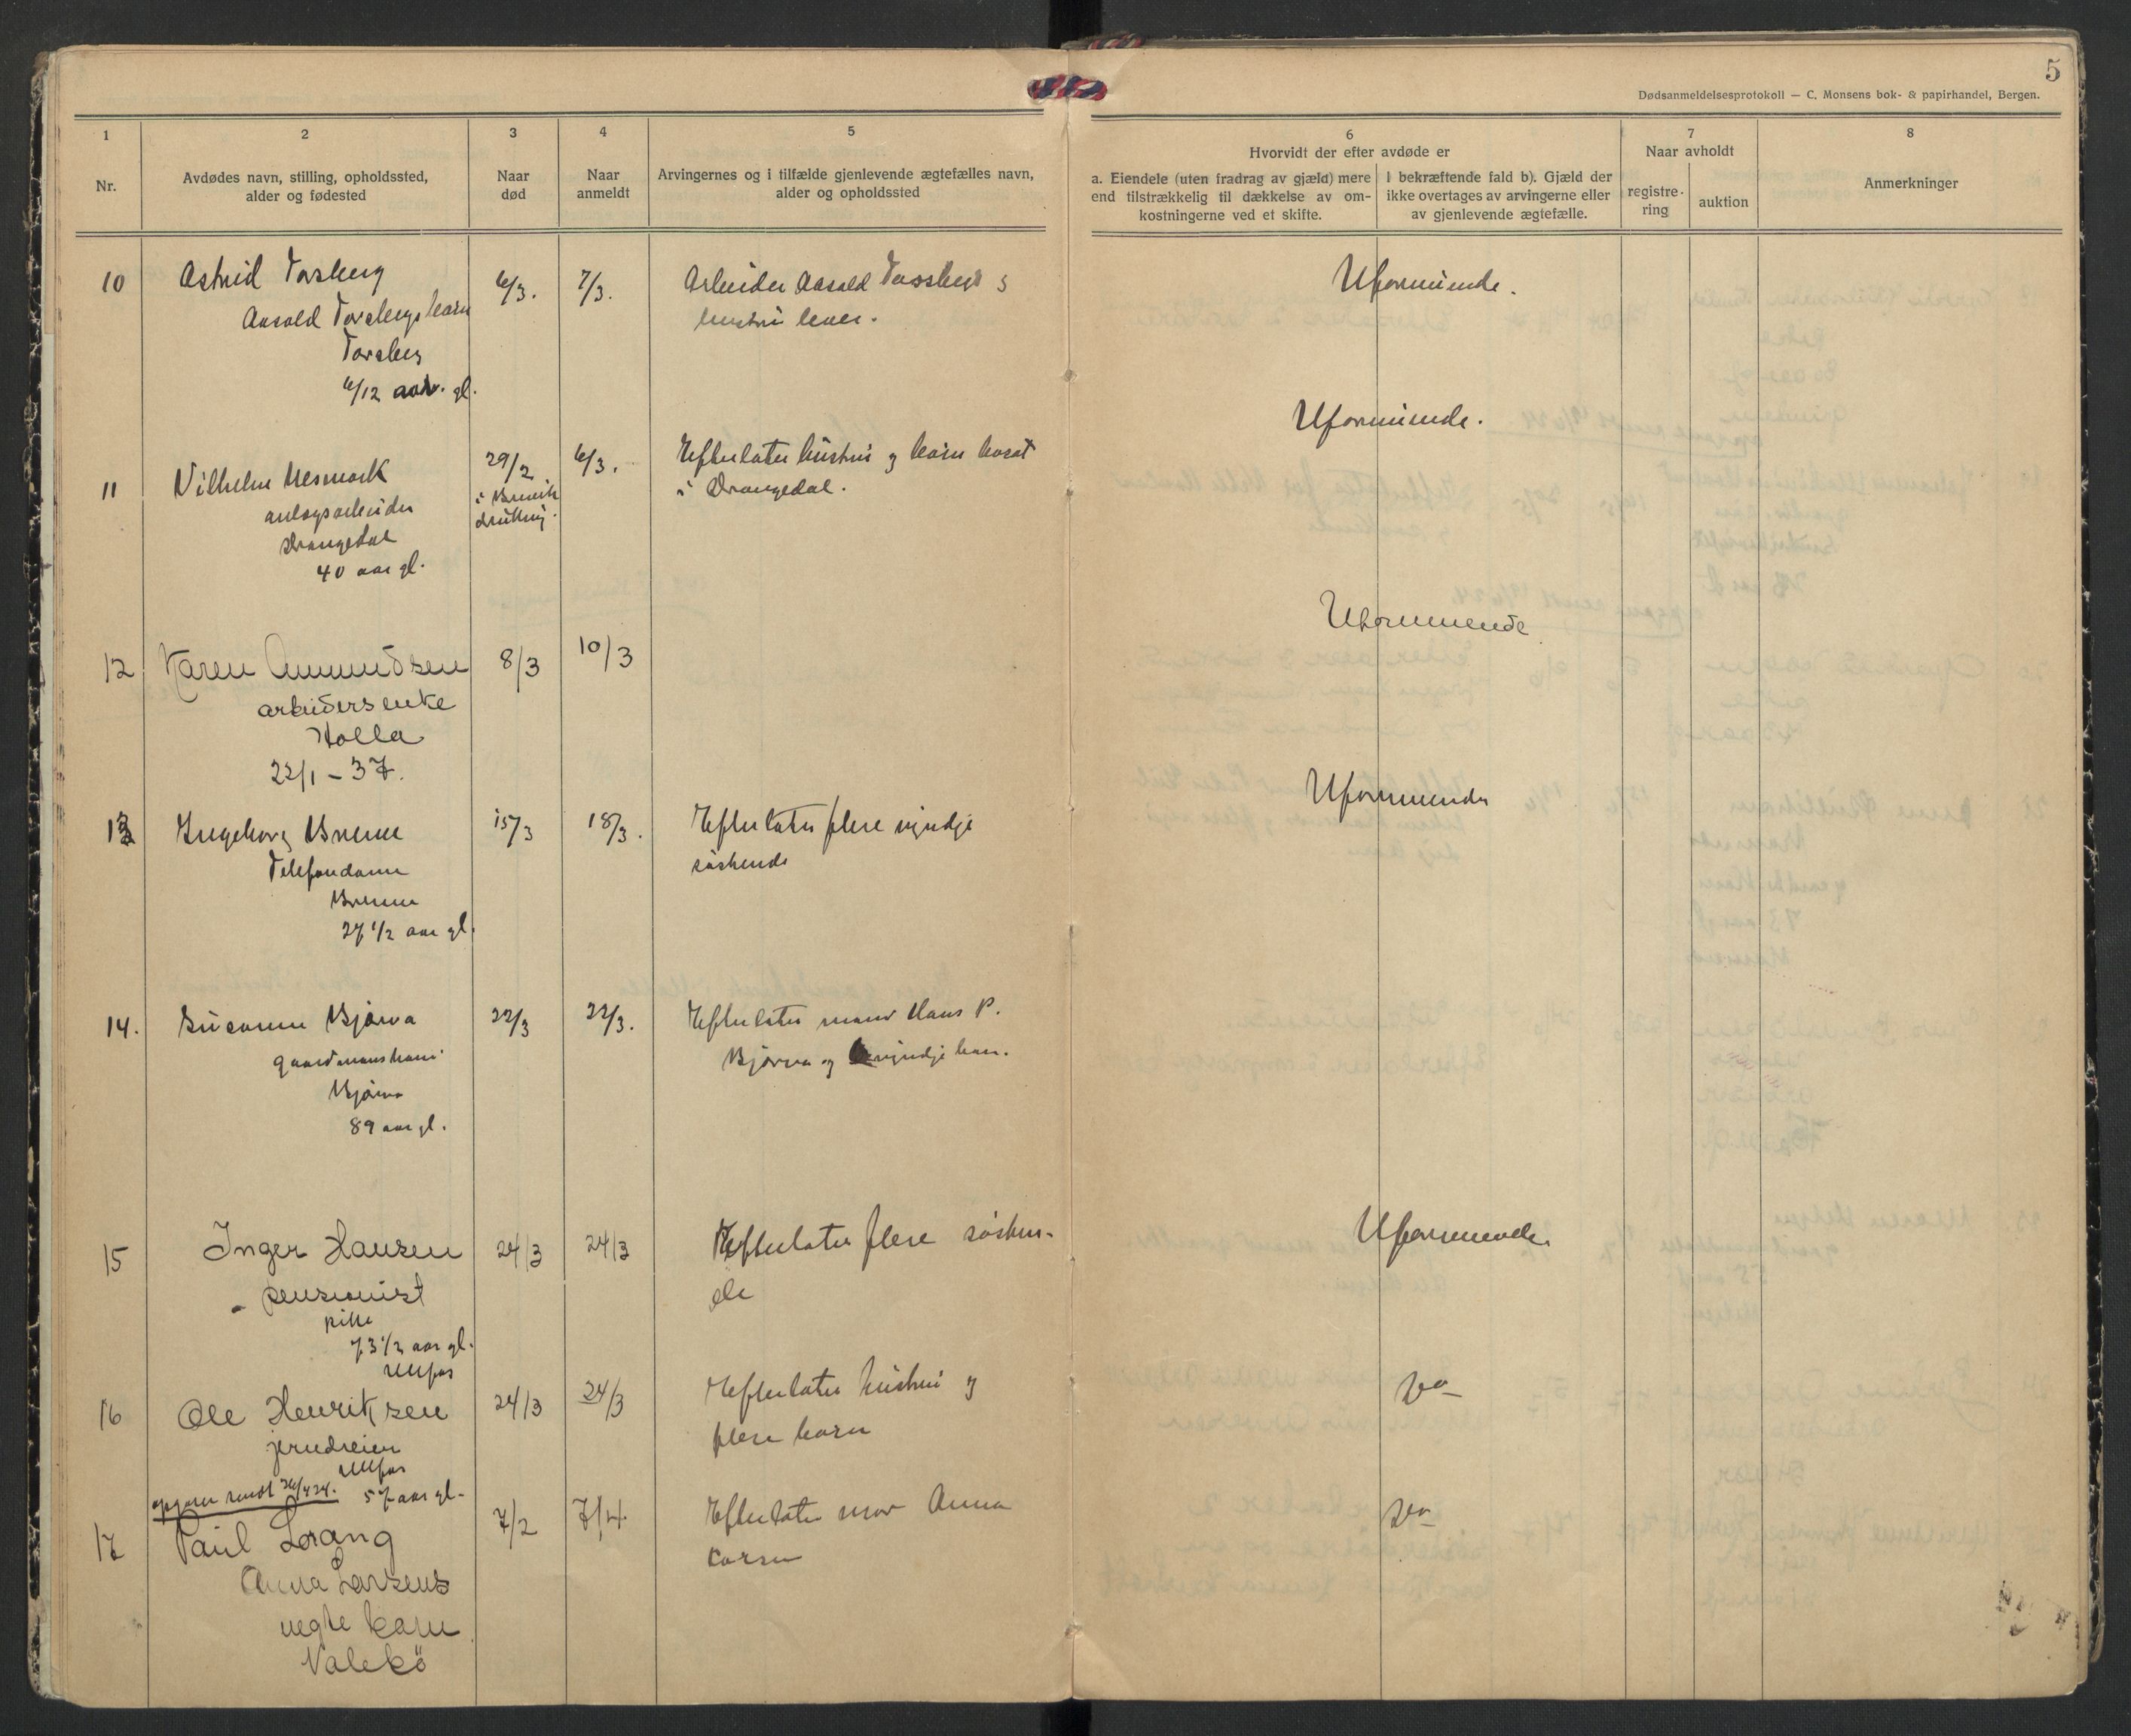 5
Dødsanmeldelsesprotokoll — C. Monsens bok- & papirhandel, Bergen.
1
2
3
4
5
6
7
8
Nr.
Avdødes navn, stilling, opholdssted,
alder og fødested
Naar
død
Naar
anmeldt
Arvingernes og i tilfælde gjenlevende ægtefælles navn,
alder og opholdssted
Hvorvidt der efter avdøde er
a. Eiendele (uten fradrag av gjæld) mere
end tilstrækkelig til dækkelse av om-
kostningerne ved et skifte.
I bekræftende fald b). Gjæld der
ikke overtages av arvingerne eller
av gjenlevende ægtefælle.
Naar avholdt
registre-
ring
auktion
Anmerkninger
10
Astrid Torsberg
Torsbergs barn
6/12 aar. gl.
6/3.
7/3.
Arbeider
hustru lever.
Uformuende.
11
Vilhelm
anlægsarbeider
Drangedal
40 aar gl.
29/2
i
6/3.
Efterlater hustru og barn bosat
i Drangedal.
Uformuende.
12
Karen Amundsen
arbeidersenke
Holla
22/1 – 37.
8/3
10/3
Uformuende
13
Ingeborg
Telefondame
27 1/2 aar gl.
15/3
18/3.
Efterlater flere myndje
søskende
Uformuende
14.
gaardmanskone
89 aar gl.
22/3
22/3.
Efterlater mand Hans P.
og myndje
15
Inger Hansen
pensionist
pike
73 1/2 aar gl.
Ulefos
24/3
24/3
Efterlater flere søsken-
de
Uformuende.
16
Ole Henriksen
jerndreier
Ulefos
57 aar gl.
opgaver sendt 26/4 24.
24/3
24/3
Efterlater hustru og
flere barn
17
Paul Lorang
Anna Larsens
uegte barn
Valebø
7/2
7/4.
Efterlater mor Anna